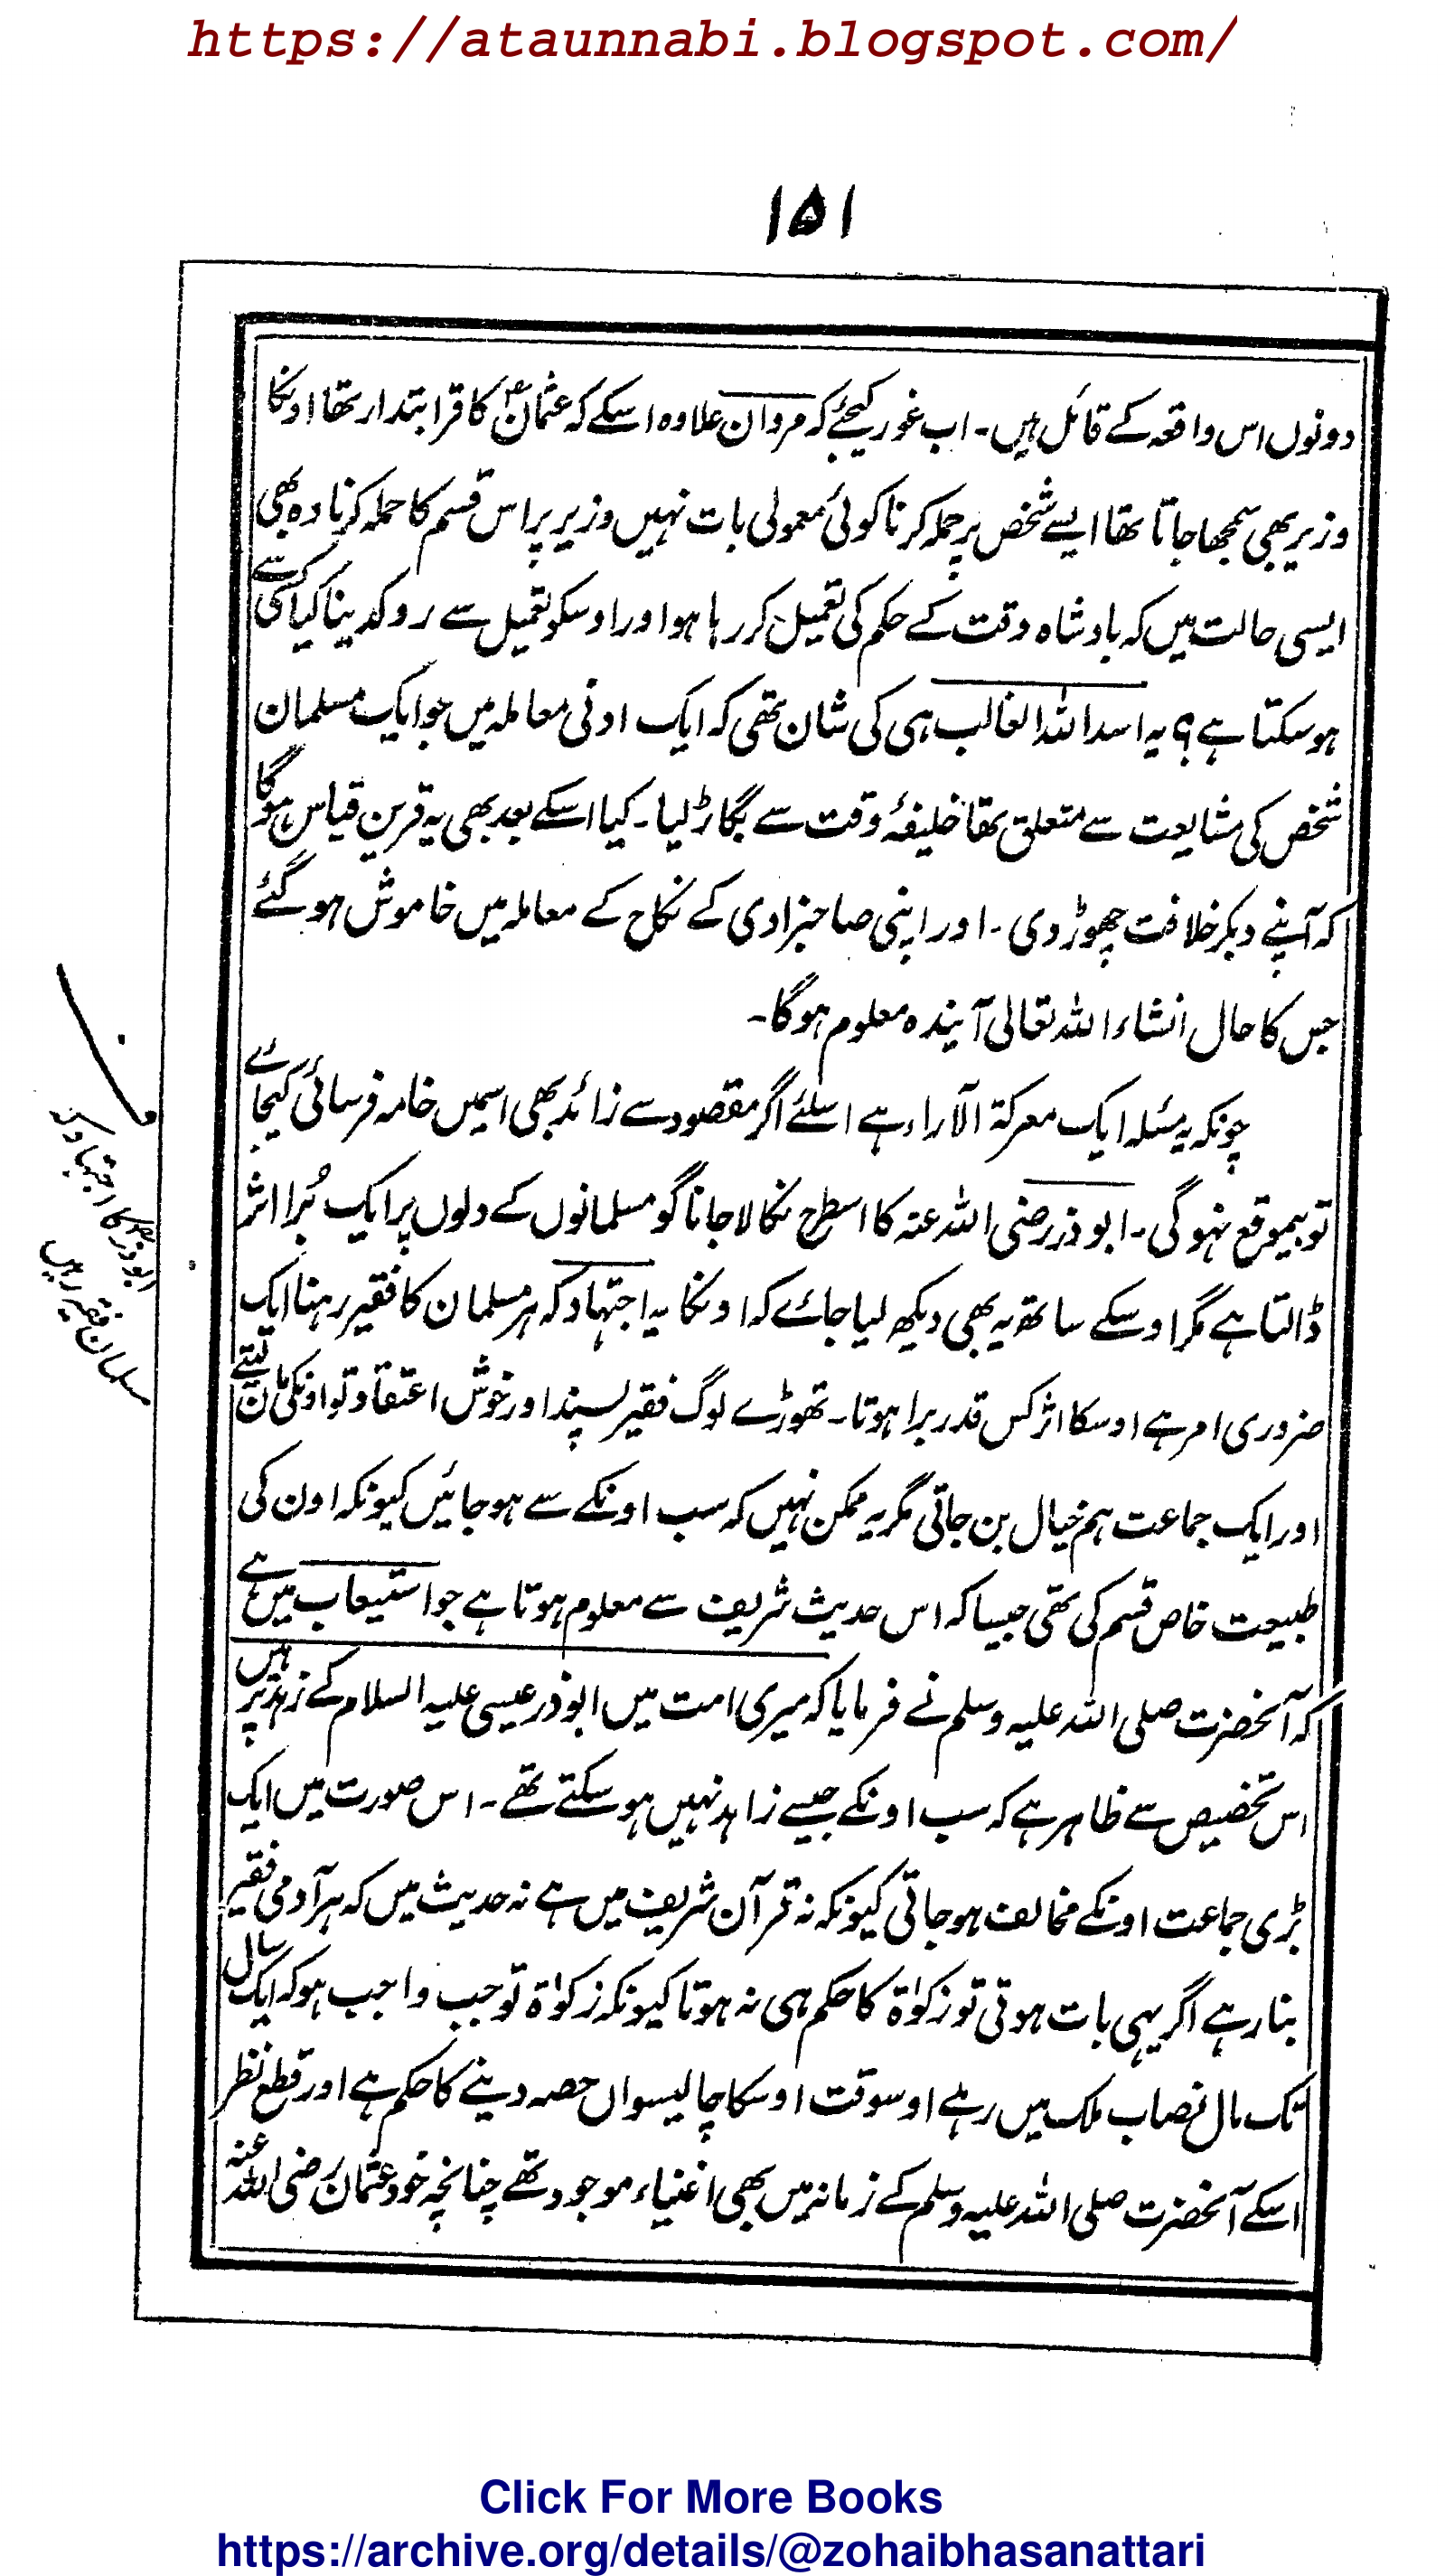 https://ataunnabi.blogspot.com/
۱۵۱
دونوں اس واقعہ کے قائل ہیں۔ اب غور کیجئے کہ مروان علاوہ اسکے کہ عثمانؓ کا قرابتدار تھا اونکا
وزیر بھی سمجھا جاتا تھا ایسے شخص پر حملہ کرنا کوئی معمولی بات نہیں وزیر پر اس قسم کا حملہ کرنا وہ بھی
ایسی حالت میں کہ بادشاہ وقت کے حکم کی تعمیل کر رہا ہو اور اوسکو تعمیل سے روکدینا کیا کسی سے
ہو سکتا ہے؟ یہ اسد اللہ الغالب ہی کی شان تھی کہ ایک ادنی معاملہ میں جو ایک مسلمان
شخص کی مشایعت سے متعلق تھا خلیفۂ وقت سے بگاڑ لیا۔ کیا اسکے بعد بھی یہ قرین قیاس ہوگا
کہ آپنے دبکر خلافت چھوڑ دی۔ اور اپنی صاحبزادی کے نکاح کے معاملہ میں خاموش ہو گئے
جس کا حال انشاء اللہ تعالی آیندہ معلوم ہوگا۔
چونکہ یہ مسئلہ ایک معرکۃ الآراء ہے اسلئے اگر مقصود سے زائد بھی اسمیں خامہ فرسائی کیجائے
تو بیموقع نہوگی۔ ابوذر رضی اللہ عنہ کا اسطرح نکالا جانا گو مسلمانوں کے دلوں پر ایک بُرا اثر
ڈالتا ہے مگر اوسکے ساتھ یہ بھی دیکھ لیا جائے کہ اونکا یہ اجتہاد کہ ہر مسلمان کا فقیر رہنا ایک
ضروری امر ہے اوسکا اثر کس قدر برا ہوتا۔ تھوڑے لوگ فقیر پسند اور خوش اعتقاد تو اونکی مان لیتے
اور ایک جماعت ہم خیال بن جاتی مگر یہ ممکن نہیں کہ سب اونکے سے ہو جائیں کیونکہ اون کی
طبیعت خاص قسم کی تھی جیسا کہ اس حدیث شریف سے معلوم ہوتا ہے جو استیعاب میں ہے
کہ آنحضرت صلی اللہ علیہ وسلم نے فرمایا کہ میری امت میں ابوذر عیسی علیہ السلام کے زہد پر ہیں
اس تخصیص سے ظاہر ہے کہ سب اونکے جیسے زاہد نہیں ہو سکتے تھے۔ اس صورت میں ایک
بڑی جماعت اونکے مخالف ہو جاتی کیونکہ نہ قرآن شریف میں ہے نہ حدیث میں کہ ہر آدمی فقیر
بنا رہے اگر یہی بات ہوتی تو زکوٰۃ کا حکم ہی نہ ہوتا کیونکہ زکوٰۃ تو جب واجب ہو کہ ایک سال
تک مال نصاب ملک میں رہے اوسوقت اوسکا چالیسواں حصہ دینے کا حکم ہے اور قطع نظر
اسکے آنحضرت صلی اللہ علیہ وسلم کے زمانہ میں بھی اغنیاء موجود تھے چنانچہ خود عثمان رضی اللہ عنہ
ابوذرؓ کا اجتہاد کہ
مسلمان فقیر رہیں
Click For More Books
https://archive.org/details/@zohaibhasanattari